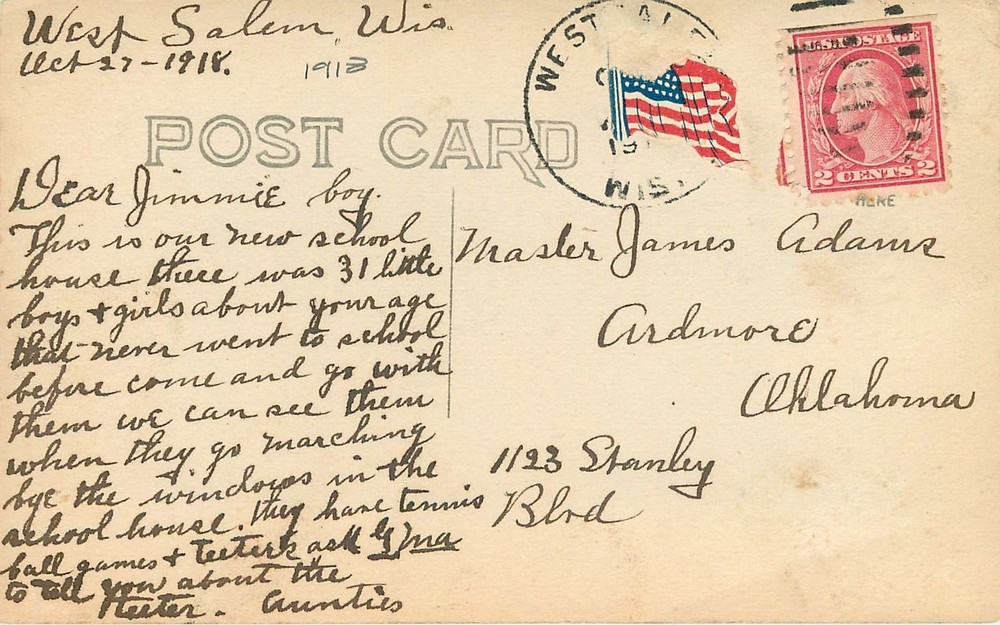 West Salem, Wis.
Oct 27-1918.
1918
WEST SALEM
WIS.
U.S. POSTAGE
2 CENTS 2
HERE
POST CARD
Dear Jimmie boy.
This is our new school
house there was 31 little
boys + girls about your age
that never went to school
before come and go with
them we can see them
when they go marching
bye the windows in the
school house. they have tennis
ball games + teeters ask G/ma
to tell you about the
teeter - Aunties
Master James Adams
Ardmore
Oklahoma
1123 Stanley
Blvd